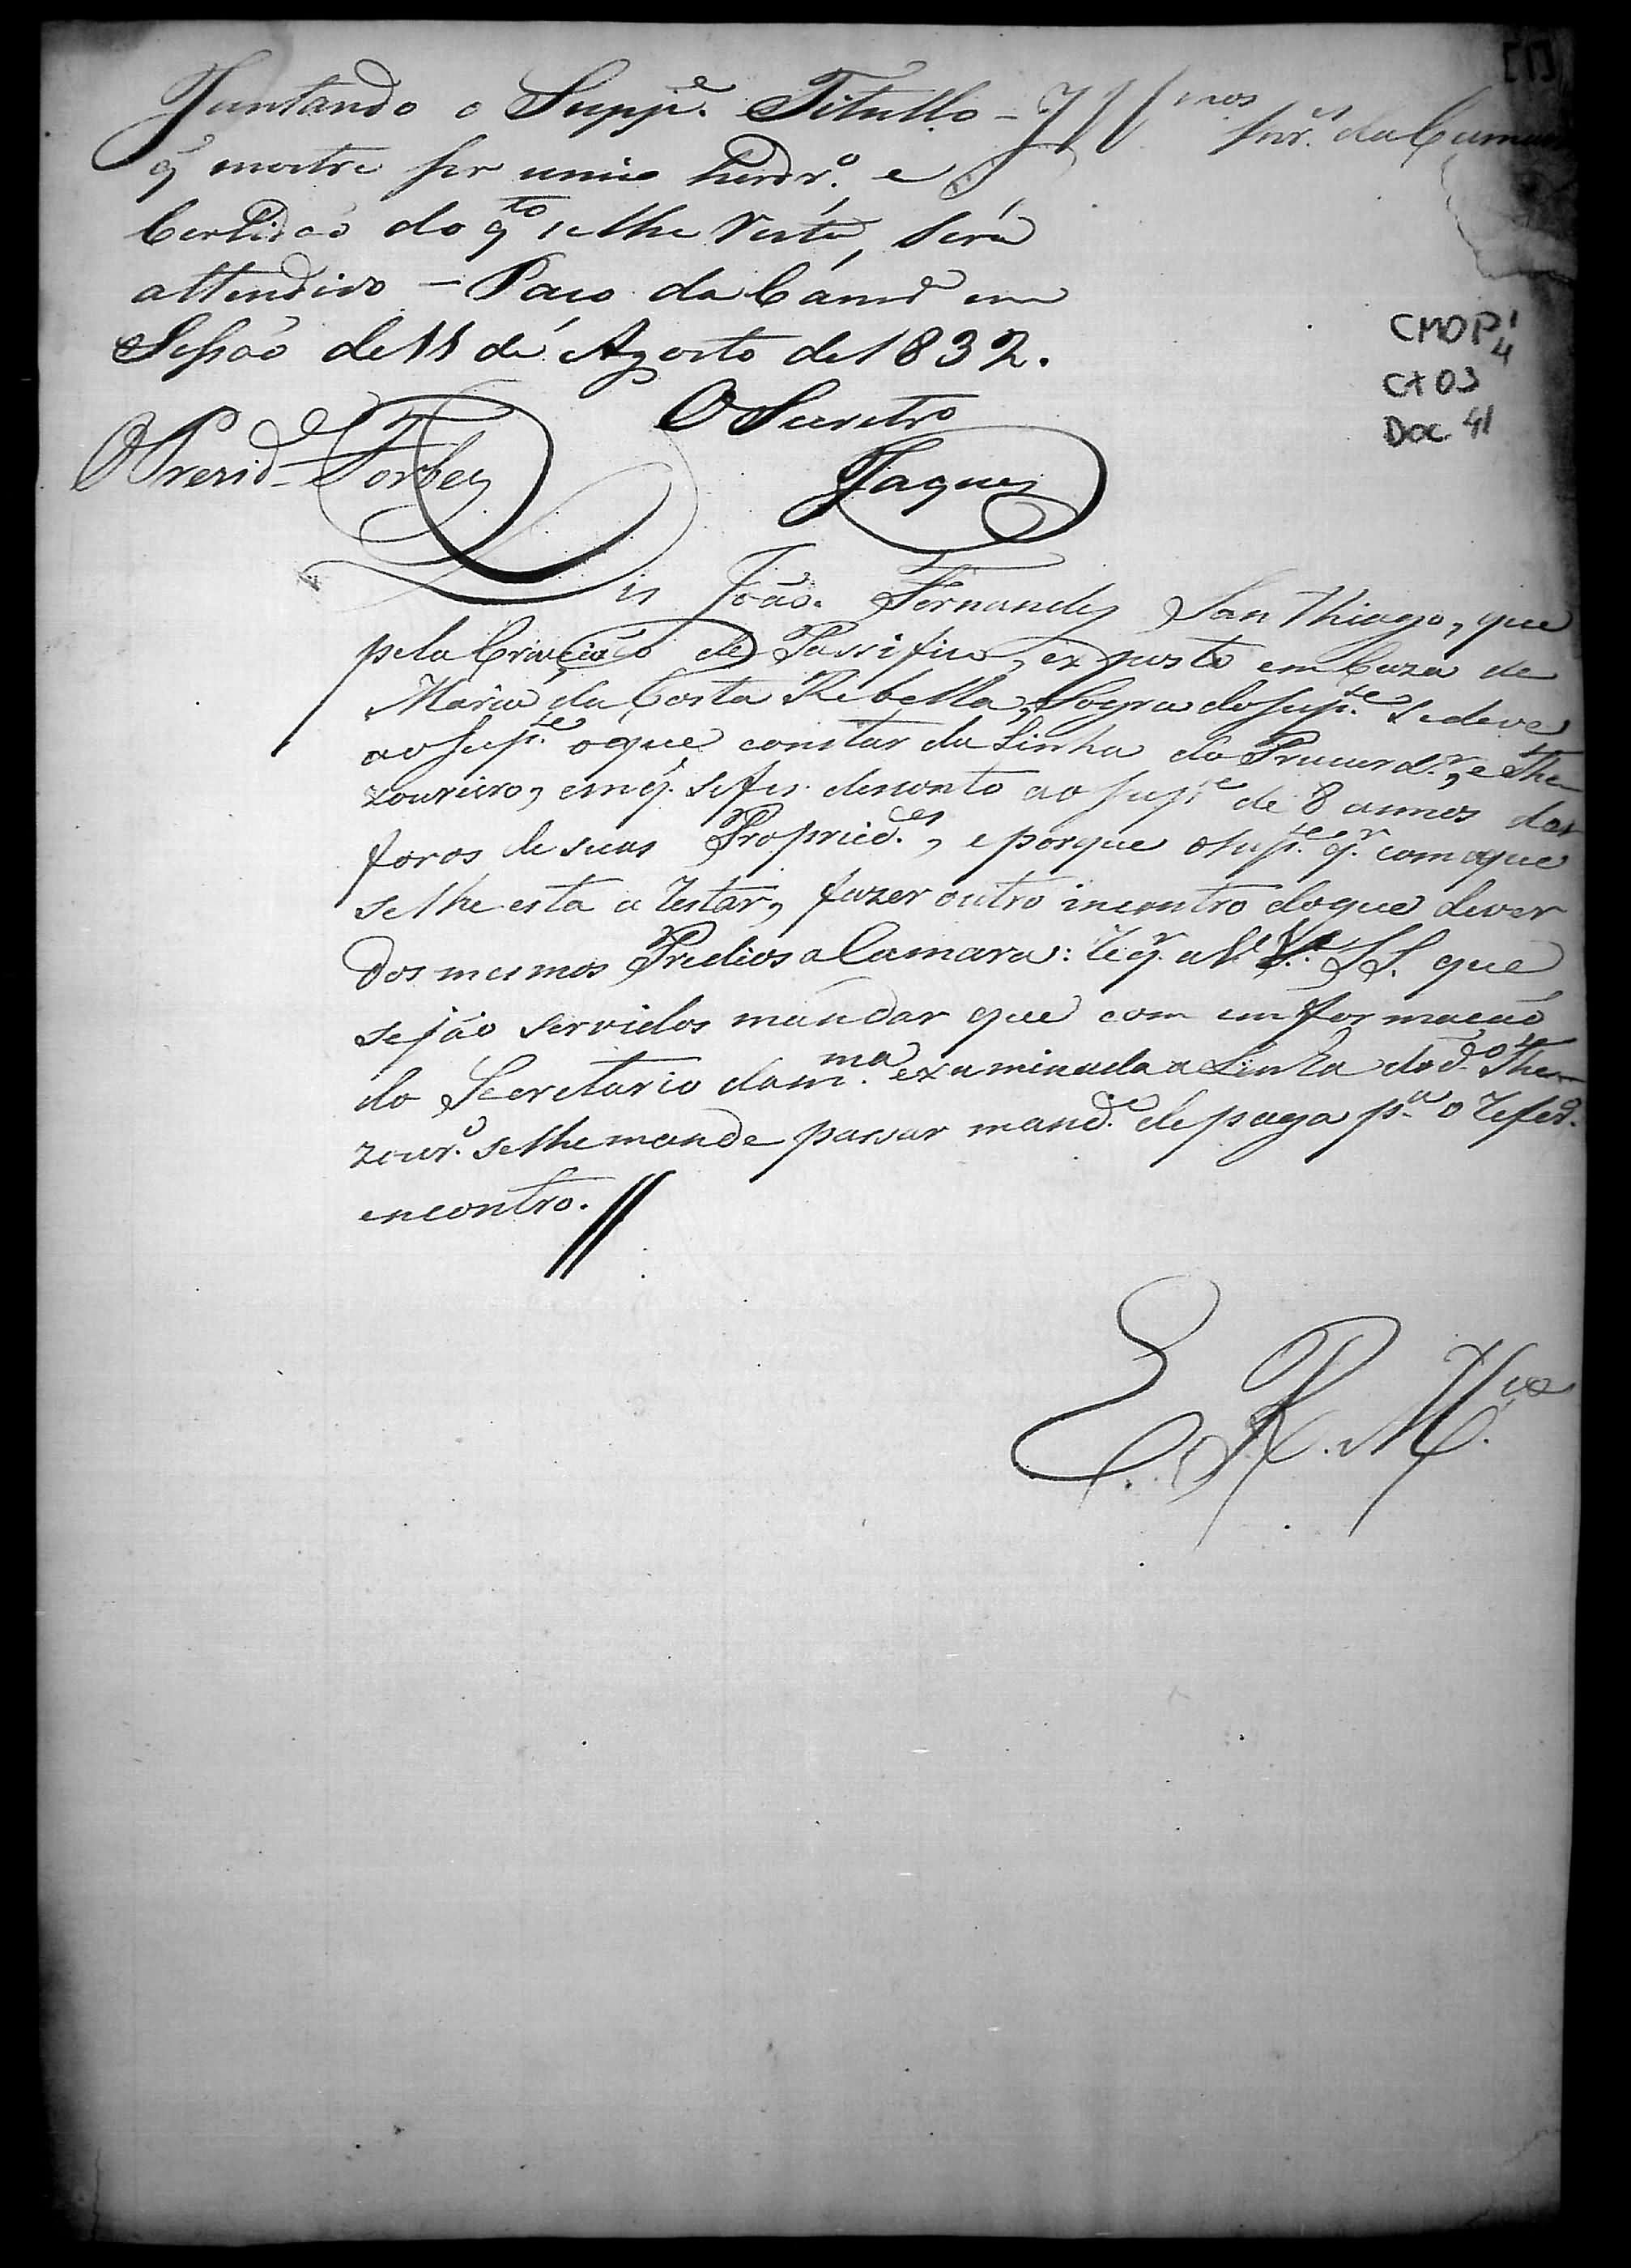 [1]
Juntando o Supp.e Titullo
q̃ mostre ser unico herdr.o e
Certidaõ do q.to se lhe resta, será
attendido – Paço da Cámr.a em
Sessaõ de 11 de Agosto de 1832.
O Secretr.o
O Prezid.e Forbes
Jaques
Ill.mos Snr.es da Camara
CMOP 1/4
CX 03
Doc 41
Dis Joaõ Fernandes San Thiago, que
pela Criaçaõ de Passifico, exposto em Caza de
Maria da Costa Rebella, Sogra do Sup.te se deve
ao Sup.te o que constar da Linha do Procurd.r, e The-
zoureiro, em q̃. se fes desconto ao Sup.te de 8 annos dos
foros de suas Propried.es, e porque o Sup.te q.r com o que
se lhe esta a restar, fazer outro incontro do que dever
dos mesmos Predios a Camara: req.r a V.V. S.S. que
sejão servidos mandar que com informacaõ
do Secretario da m.ma examinada a Linha do d.o The-
zour.o se lhe mande passar mand.o de paga p.a o referd.o
encontro. //
E. R. M.ce